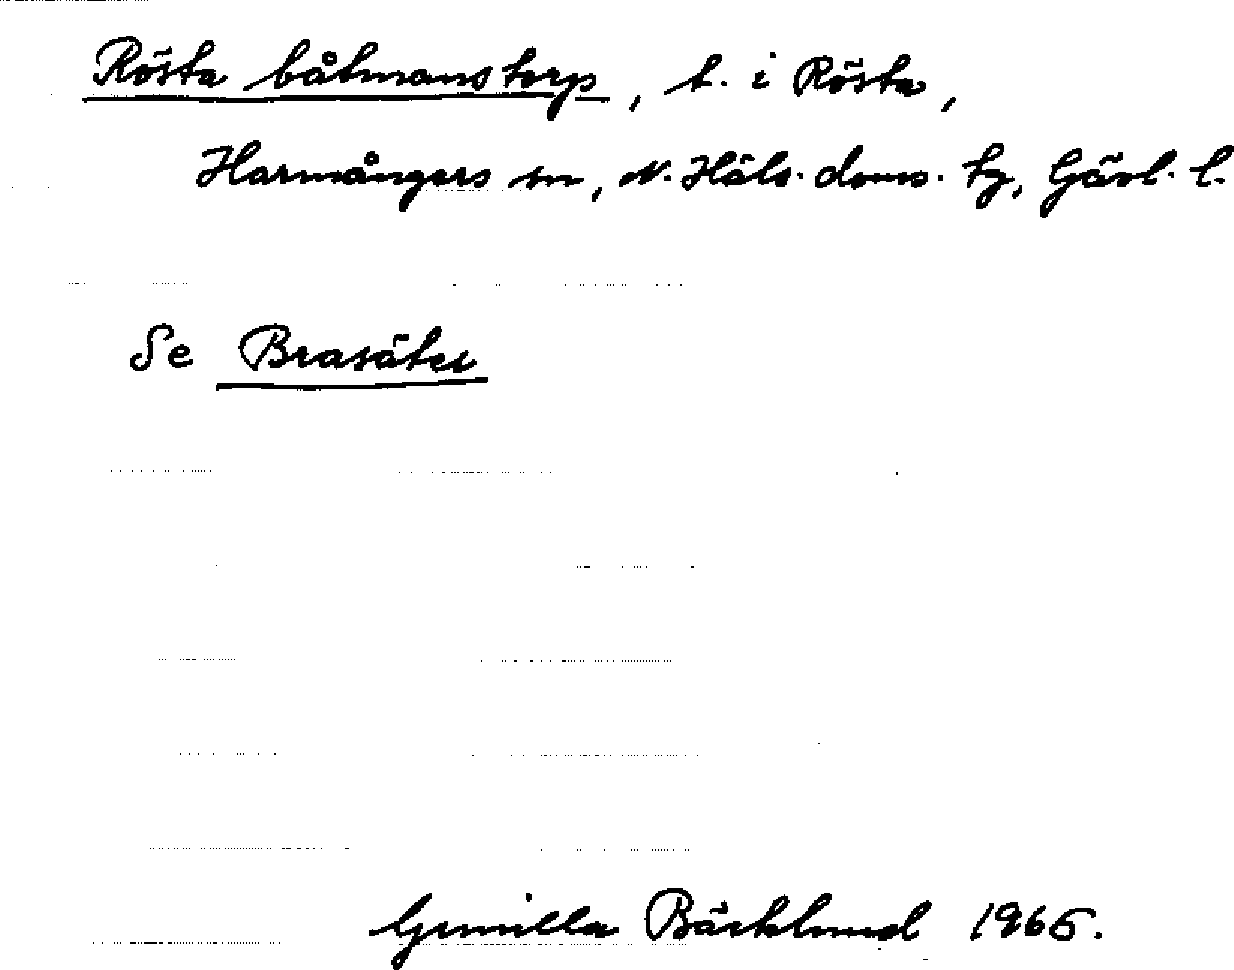 Rösta båtmanstorp, t. i Rösta,
Harmångers sn, N. Häls. doms. tg, Gävl. l.
Se Brasäter
Gunilla Bäcklund 1965.